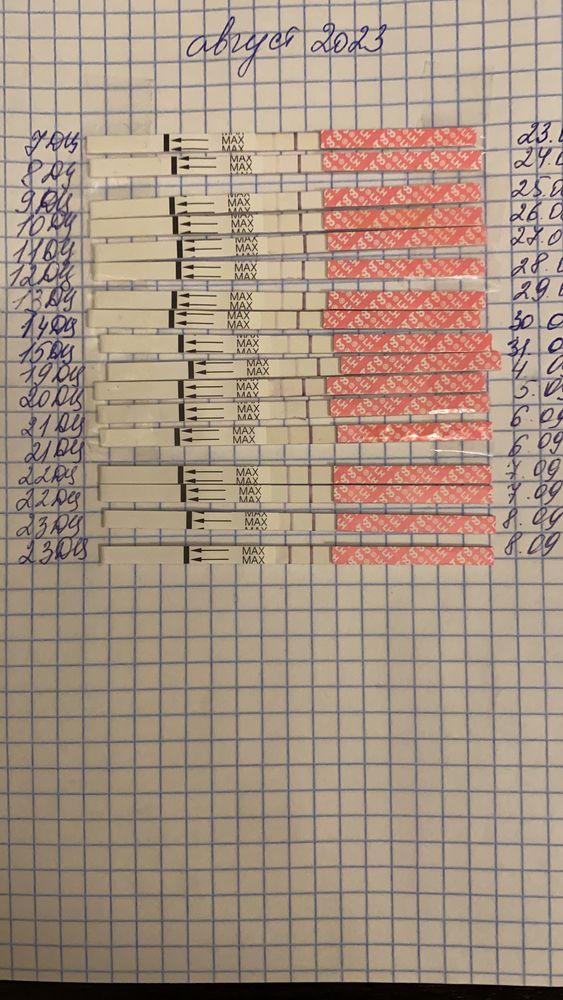 август 2023
7 ДЦ MAX 23.
8 ДЦ MAX MAX 24.
9 ДЦ MAX MAX 25.0
10 ДЦ MAX MAX 26.0
11 ДЦ MAX MAX 27.0
12 ДЦ MAX MAX 28.
13 ДЦ MAX MAX 29.
14 ДЦ MAX MAX 30.0
15 ДЦ MAX MAX 31.0
19 ДЦ MAX MAX 4.0
20 ДЦ MAX MAX 5.09
21 ДЦ MAX MAX 6.09
21 ДЦ MAX MAX 6.09
22 ДЦ MAX MAX 7.09
22 ДЦ MAX MAX 7.09
23 ДЦ MAX MAX 8.09
23 ДЦ MAX MAX 8.09